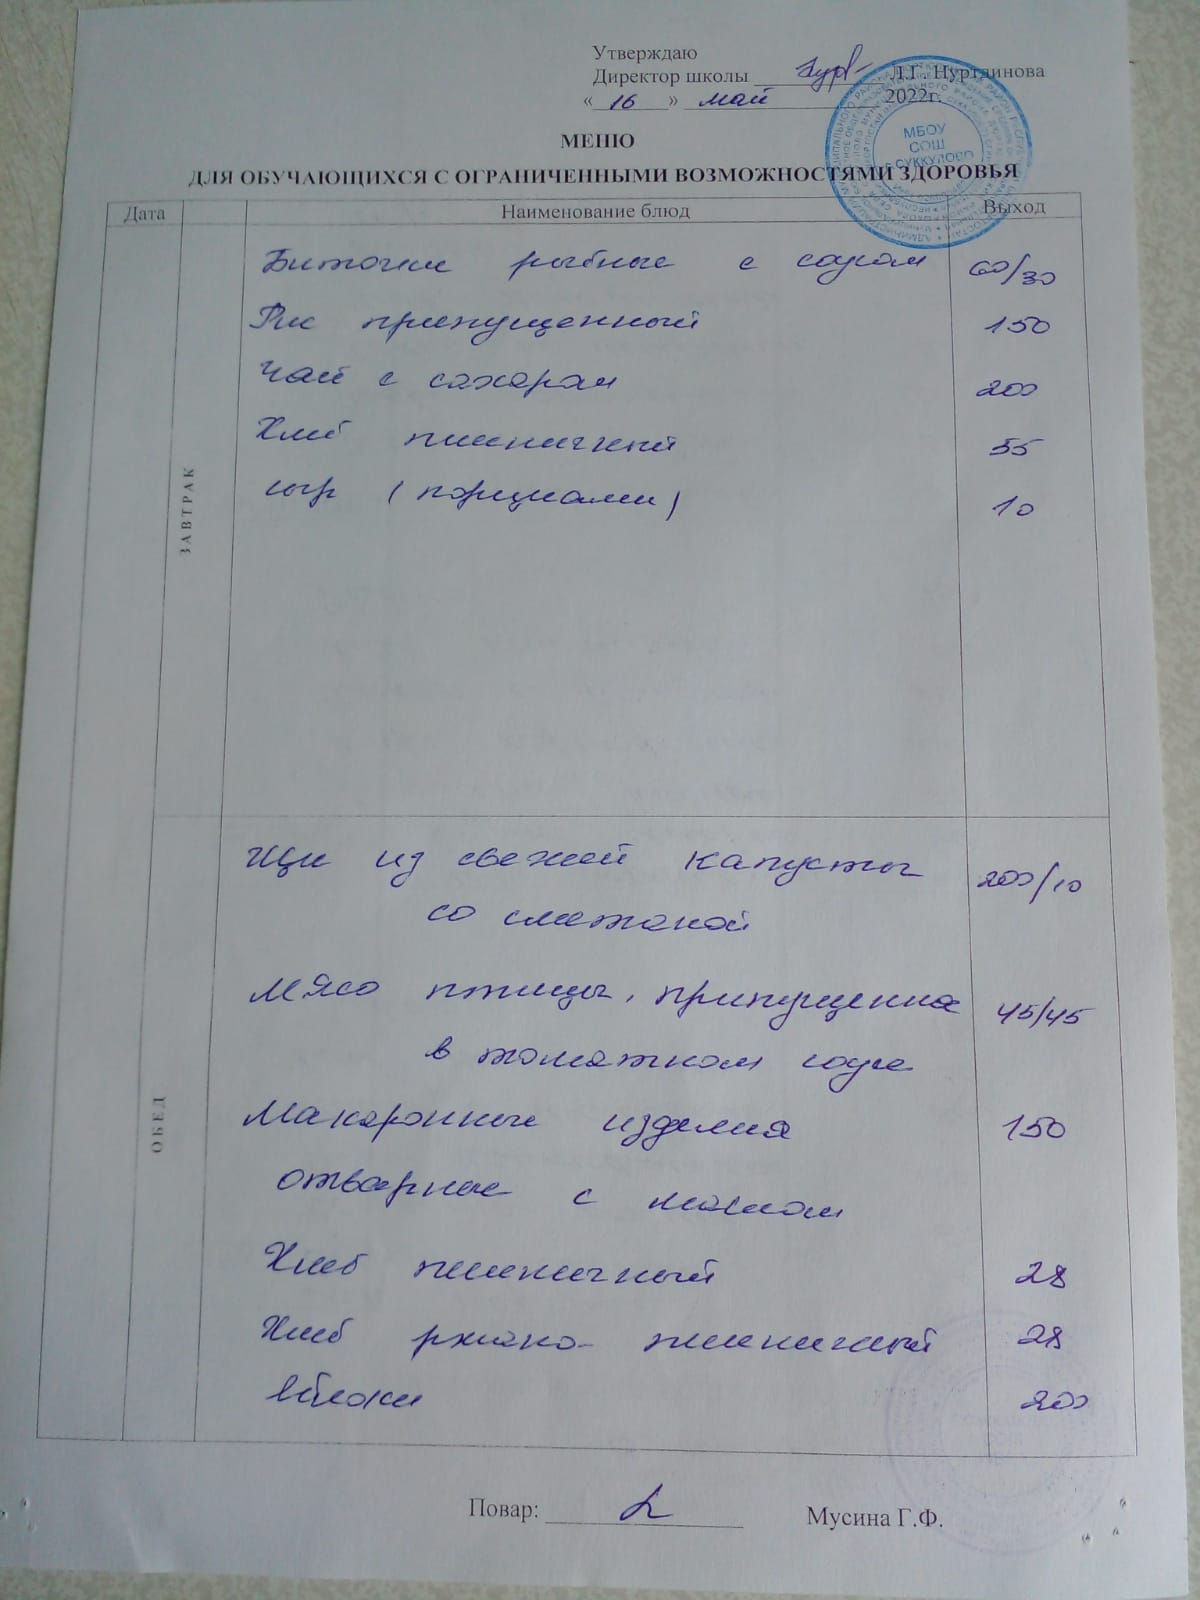 Утверждаю
Директор школы Л.Г. Нуртдинова
« 16 » май 2022г.
МБОУ
СОШ
с.СУККУЛОВО
МЕНЮ
ДЛЯ ОБУЧАЮЩИХСЯ С ОГРАНИЧЕННЫМИ ВОЗМОЖНОСТЯМИ ЗДОРОВЬЯ
Дата Наименование блюд Выход
ЗАВТРАК
Биточки рыбные с соусом 60/30
Рис припущенный 150
Чай с сахаром 200
Хлеб пшеничный 55
сыр (порциями) 10
ОБЕД
Щи из свежей капусты 200/10
со сметаной
Мясо птицы, припущенное 45/45
в томатном соусе
Макаронные изделия 150
отварные с маслом
Хлеб пшеничный 28
Хлеб ржано-пшеничный 28
яблоки 200
Повар: Мусина Г.Ф.